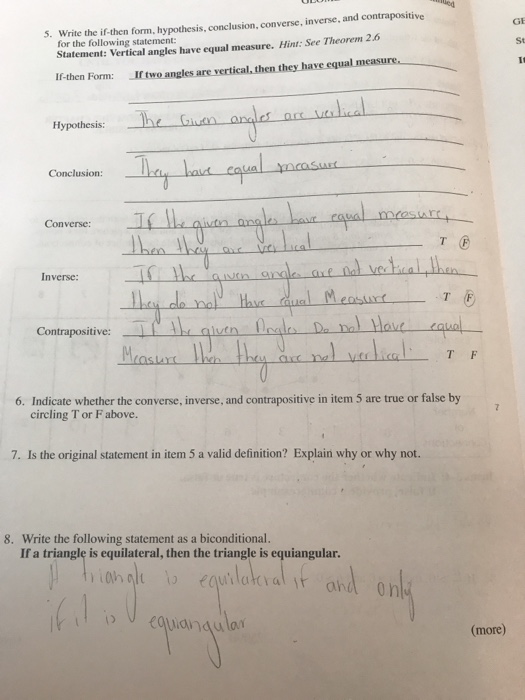 5. Write the if-then form, hypothesis, conclusion, converse, inverse, and contrapositive
for the following statement:
Statement: Vertical angles have equal measure. Hint: See Theorem 2.6
If-then Form: If two angles are vertical, then they have equal measure.
Hypothesis: The Given angles are vertical
Conclusion: They have equal measure
Converse: If the given angles have equal measure,
then they are vertical T F
Inverse: If the given angles are not vertical, then
they do not Have equal Measure T F
Contrapositive: If the given Angles Do not Have equal
Measure then they are not vertical. T F
6. Indicate whether the converse, inverse, and contrapositive in item 5 are true or false by
circling T or F above.
7. Is the original statement in item 5 a valid definition? Explain why or why not.
8. Write the following statement as a biconditional.
If a triangle is equilateral, then the triangle is equiangular.
A triangle is equilateral if and only
if it is equiangular
(more)